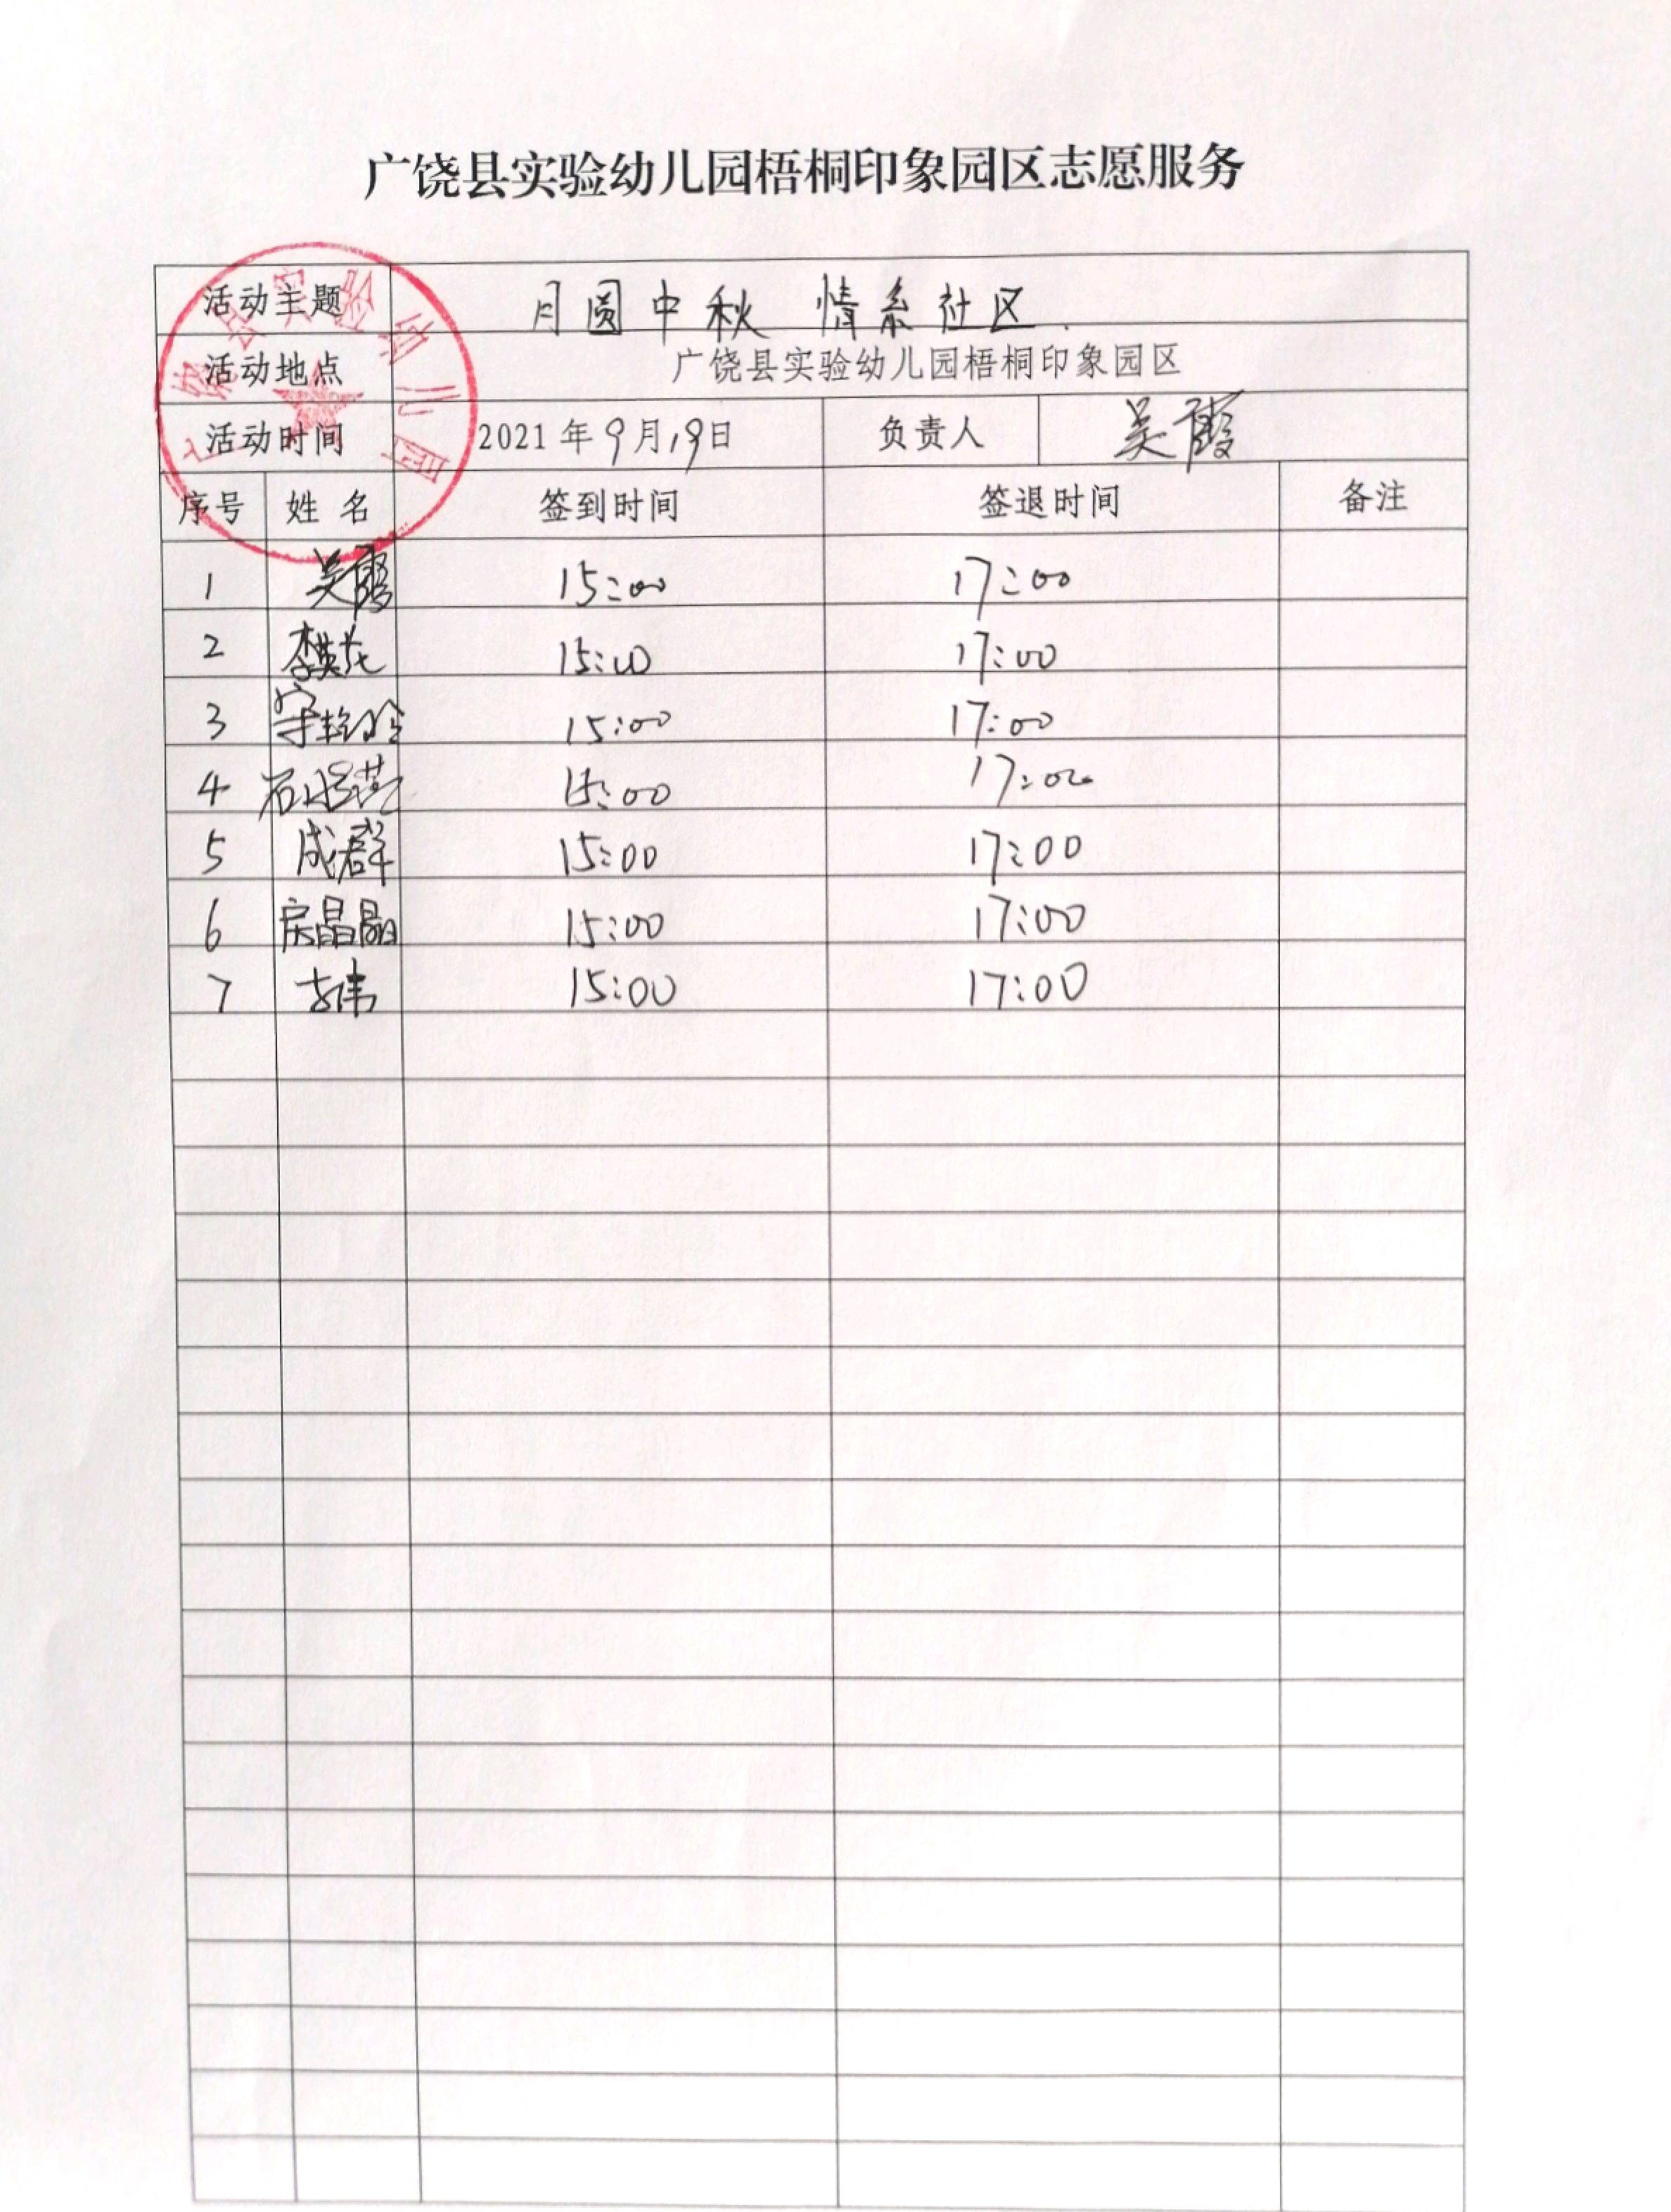 广饶县实验幼儿园梧桐印象园区志愿服务
活动主题 月圆中秋 情系社区.
活动地点 广饶县实验幼儿园梧桐印象园区
活动时间 2021年9月19日 负责人 吴霞
序号 姓名 签到时间 签退时间 备注
1 吴霞 15:00 17:00
2 李英 15:00 17:00
3 15:00 17:00
4 石 15:00 17:00
5 成群 15:00 17:00
6 房晶晶 15:00 17:00
7 伟 15:00 17:00
广饶县实验幼儿园